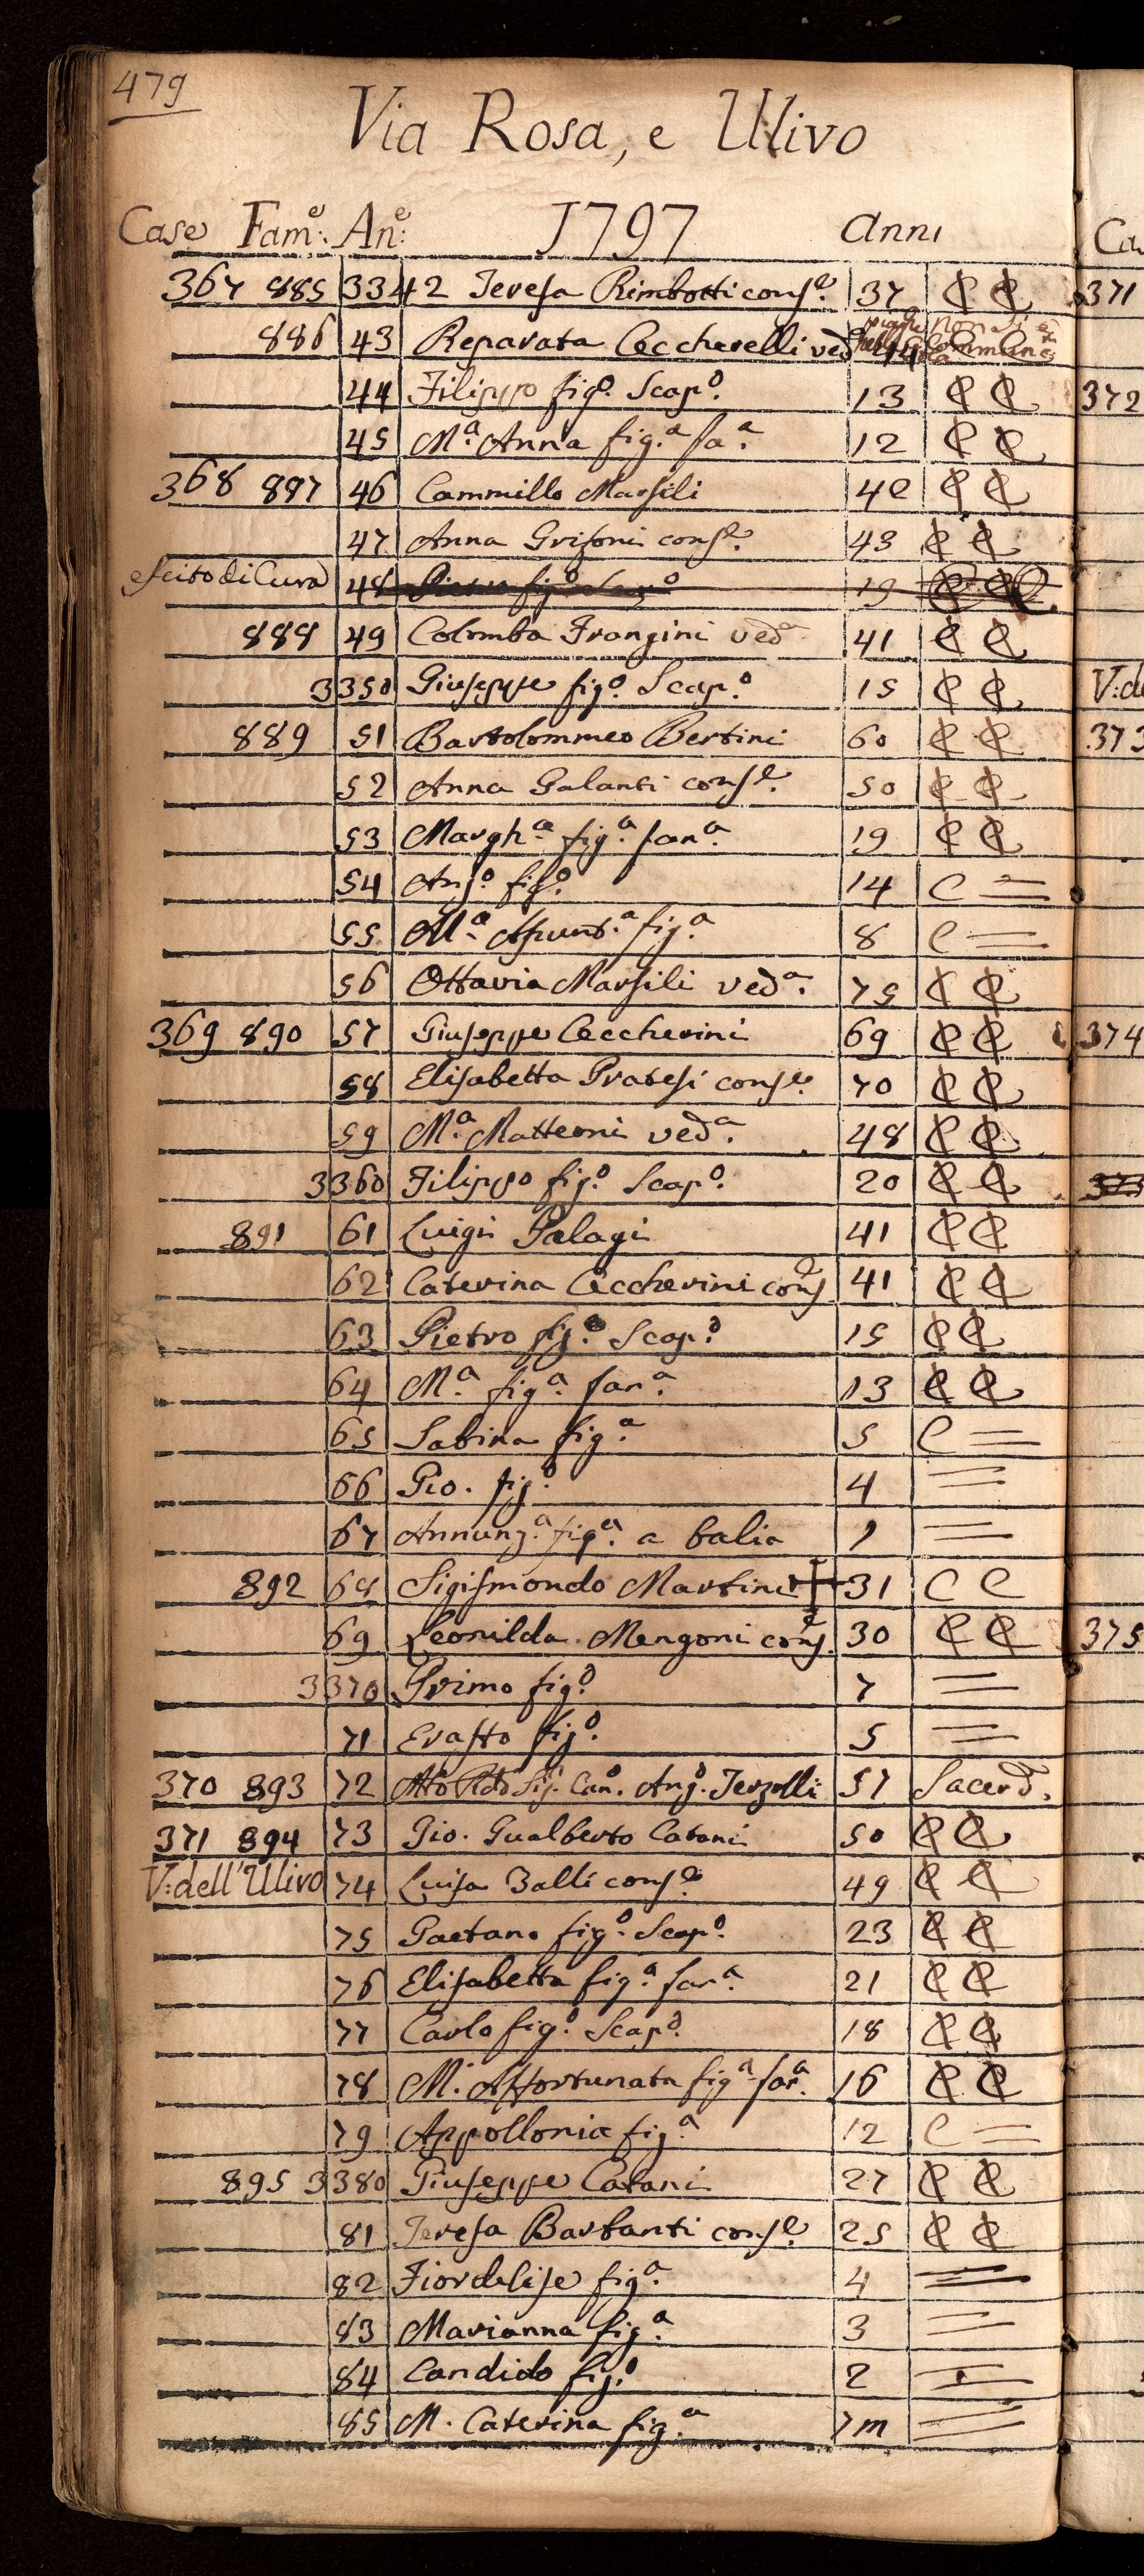 479
Via Rosa, e Ulivo
Case Fam.e An.e 1797 Anni
367 885 3342 Teresa Rimbotti cons.e 37 C C
886 43 Reparata Ceccherelli ved.a 44
44 Filippo fig.o Scap.o 13 C C
45 M.a Anna fig.a fa.a 12 C C
368 887 46 Cammillo Marsili 40 C C
47 Anna Grifoni cons.e 43 C C
escito di Cura 48 Pietro fig.o Scap.o 19 C C
888 49 Colomba Frangini ved.a 41 C C
3350 Giuseppe fig.o Scap.o 15 C C
889 51 Bartolommeo Bertini 60 C C
52 Anna Galanti cons.e 50 C C
53 Margh.a fig.a fan.a 19 C C
54 Ang.o fig.o 14 C =
55 M.a Assunt.a fig.a 8 C =
56 Ottavia Marsili ved.a 75 C C
369 890 57 Giuseppe Ceccherini 69 C C
58 Elisabetta Pratesi cons.e 70 C C
59 M.a Matteoni ved.a 48 C C
3360 Filippo fig.o Scap.o 20 C C
891 61 Luigi Palagi 41 C C
62 Caterina Ceccherini cons.e 41 C C
63 Pietro fig.o Scap.o 15 C C
64 M.a fig.a fan.a 13 C C
65 Sabina fig.a 5 C =
66 Gio. fig.o 4 =
67 Annunz.a fig.a a balia 1 =
892 68 Sigismondo Martini † 31 C C
69 Leonilda Mengoni cons.e 30 C C
3370 Primo fig.o 7 =
71 Erasto fig.o 5 =
370 893 72 Mto Rdo Sig. Can.o Ang.o Terzelli 57 Sacerd.
371 894 73 Gio. Gualberto Catani 50 C C
V: dell'Ulivo 74 Luisa Balli cons.e 49 C C
75 Gaetano fig.o Scap.o 23 C C
76 Elisabetta fig.a fan.a 21 C C
77 Carlo fig.o Scap.o 18 C C
78 M. Affortunata fig.a fan.a 16 C C
79 Appollonia fig.a 12 C =
895 3380 Giuseppe Catani 27 C C
81 Teresa Barbanti cons.e 25 C C
82 Fiordelise fig.a 4 =
83 Marianna fig.a 3 =
84 Candido fig.o 2 =
85 M. Caterina fig.a 7m =
Ca
371
372
V: de
373
374
375